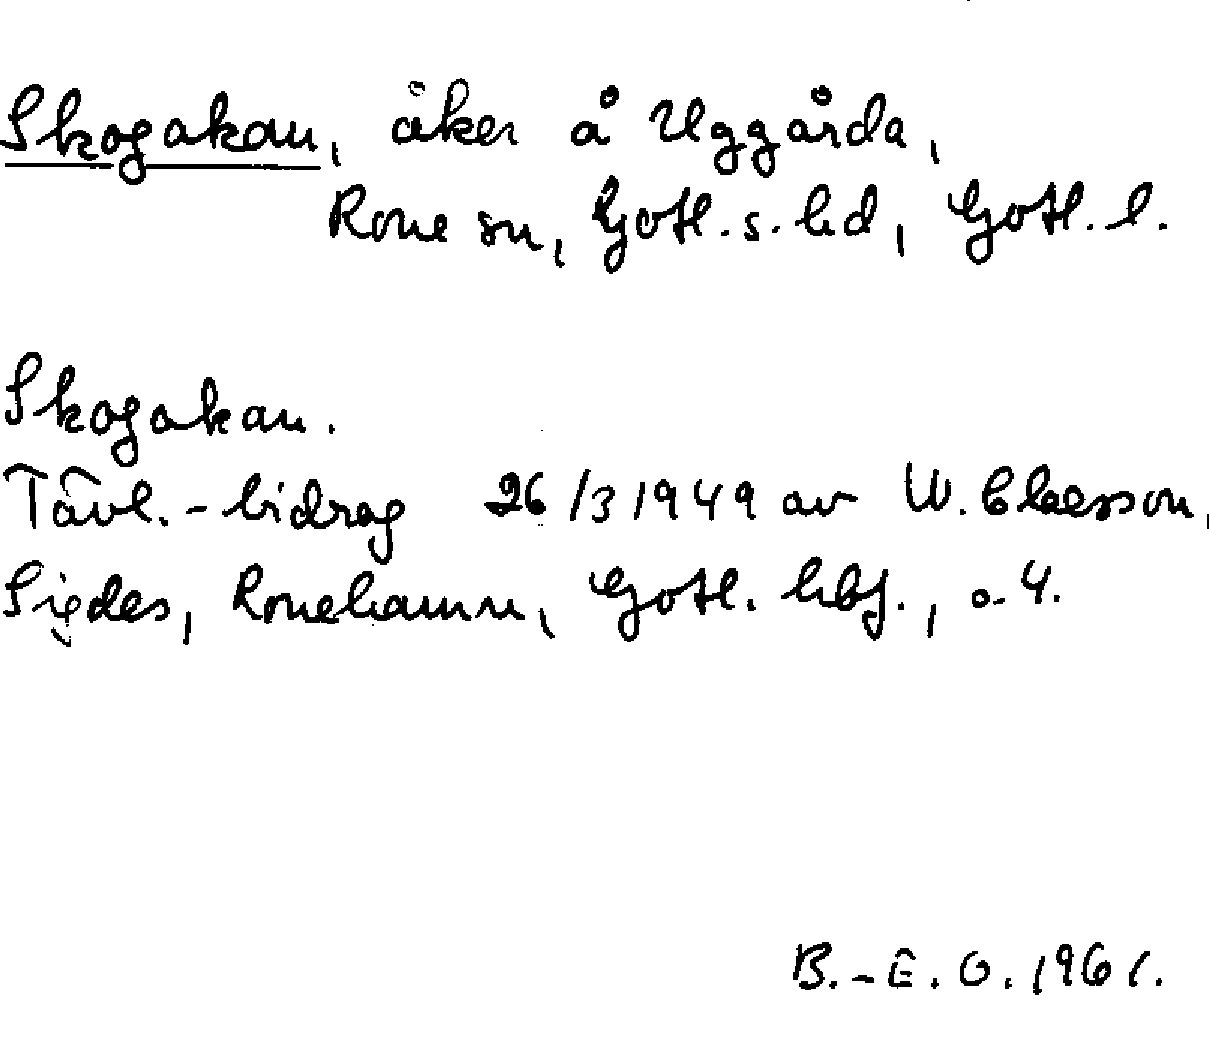 Skogakan, åker å Uggårda,
Rone sn, Gotl. s. hd, Gotl. l.
Skogakan.
Tävl.-bidrag 26/3 1949 av W. Claesson,
Sigdes, Ronehamn, Gotl. hbf., o. 4.
B.-E. O. 1961.